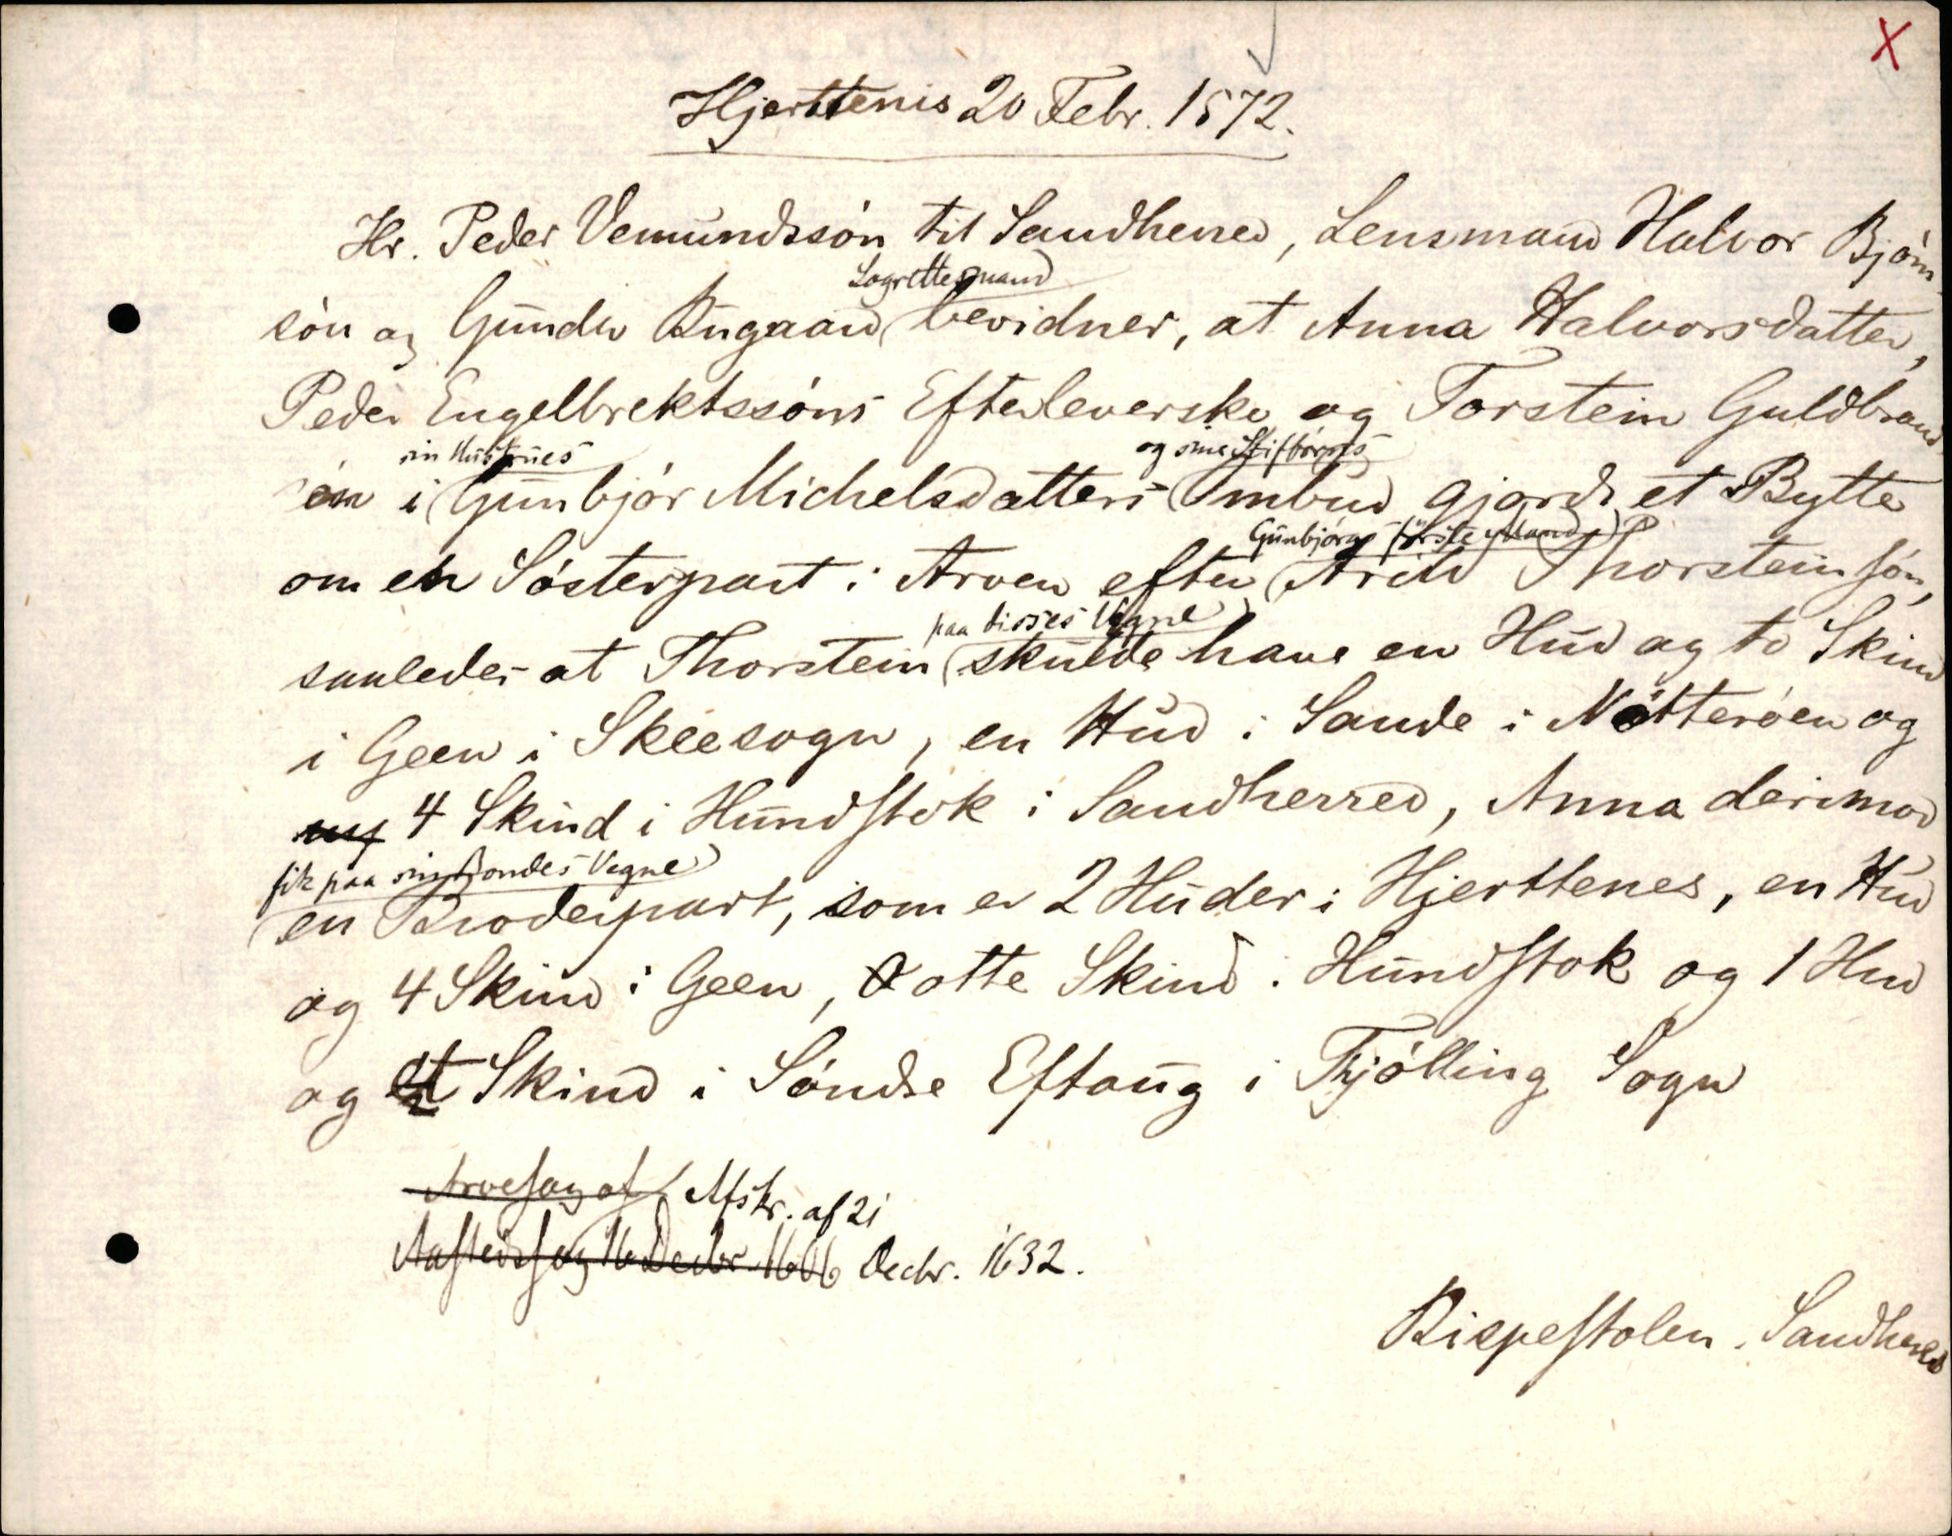 X
Hjerttenis 20 Febr. 1572.
Hr. Peder Vemundssön til Sandherred, Lensmand Halvor Björn
Lagrettesmand
sön og Gunder Rugaard bevidner, at Anna Halvorsdatter,
Peder Engelbrektssöns Efterleverske og Torstein Guldbrand
sin Hustrues og sine Stifbörns
sön i Gunbjör Michelsdatters Ombud gjorde et Bytte
Gunbjörgs förste Mand
om en Sösterpart i Arven efter Arild Thorsteinsön,
paa disses Vegne
saaledes at Thorstein skulde have en Hud og to Skind
i Geen i Skeesogn, en Hud i Sande i Nötteröen og
4 Skind i Hundstok i Sandherred, Anna derimod
fik paa sin Bondes Vegne
en Broderpart, som er 2 Huder i Hjerttenes, en Hud
og 4 Skind i Geen, otte Skind i Hundstok og 1 Hud
og et Skind i Söndre Eftang i Tjölling Sogn
Arvesag af Afskr. af 21
Aastedssag 16 Decbr. 1606 Decbr. 1632.
Bispestolen. Sandherred